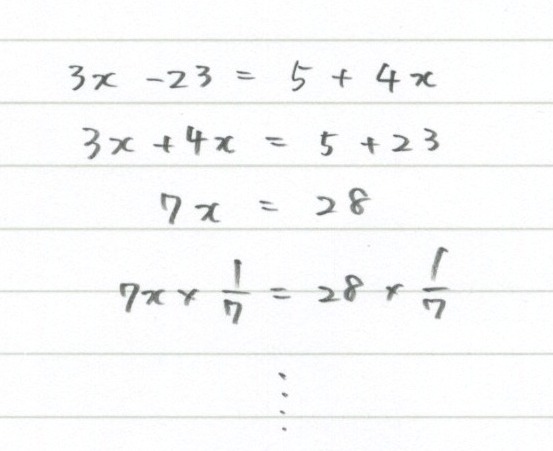 3x - 23 = 5 + 4x
3x + 4x = 5 + 23
7x = 28
7x × 1/7 = 28 × 1/7
⋮